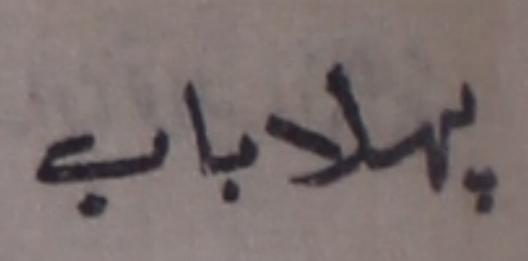 پہلا باب